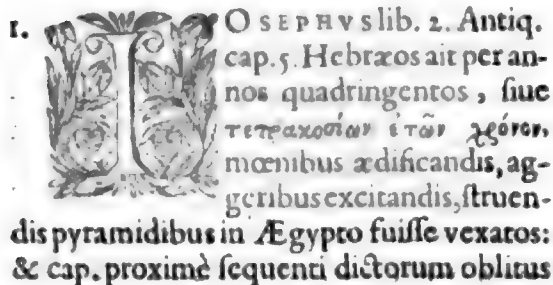 1. IOSEPHVS lib. 2. Antiq.
cap. 5. Hebræos ait per an-
nos quadringentos, siue
τετρακοσίων ἐτῶν χρόνον,
mœnibus ædificandis, ag-
geribus excitandis, ſtruen-
dis pyramidibus in Ægypto fuiſſe vexatos:
& cap. proximè ſequenti dictorum oblitus